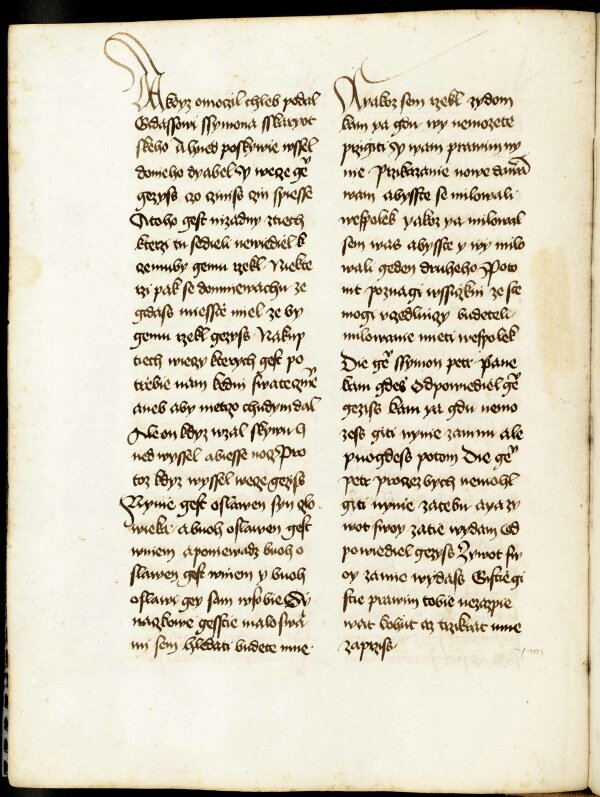 A kdyz omoczil chleb podal
Gidassowi ssymona sskaryot
skeho A hned poskywie wssel
doneho dyabel Y wecze gē
gezyss czo cziniss czin spiesse
A toho gest nizadny ztiech
kterzi tu sedieli newiediel k
czemuby gemu rzekl Niekte
rzi pak se domniewachu ze
gidass miessecz miel ze by
gemu rzekl gezyss Nakup
tiech wieczy kterych gest po
trziebie nam kedni swateczne
aneb aby nieczo chudym dal
Ale on kdyz wzal skywu h
ned wyssel abiesse nocz Pro
toz kdyz wyssel wecze gezyss
Nynie gest oslawen syn czlo
wieka abuoh oslawen gest
wniem aponiewadz buoh o
slawen gest wniem y buoh
oslawi gey sam wsobie Sy
naczkowe gesstie malo swa
mi sem hledati budete mne
A yakoz sem rzekl zydom
kam ya gdu wy nemozete
przigiti Y wam prawim ny
nie Przikazanie nowe dawā
wam abysste se milowali
wespolek yakoz ya milowal
sem was abysste y wy milo
wali geden druheho Poto
mt poznagi wssiczkni ze ste
mogi vczedlniczy budeteli
milowanie mieti wespolek
Die gē ssymon petr Pane
kam gdes Odpowiediel gē
geziss kam ya gdu nemo
zess giti nynie zamnu ale
puogdess potom Die gē
petr Proczezbych nemohl
giti nynie zatebu aya zy
wot swoy zatie wydam Od
powiediel gezyss Zywot sw
oy zamie wydass Gistiegi
stie prawim tobie nezczpie
wat kohut az trzikrat mne
zaprziss